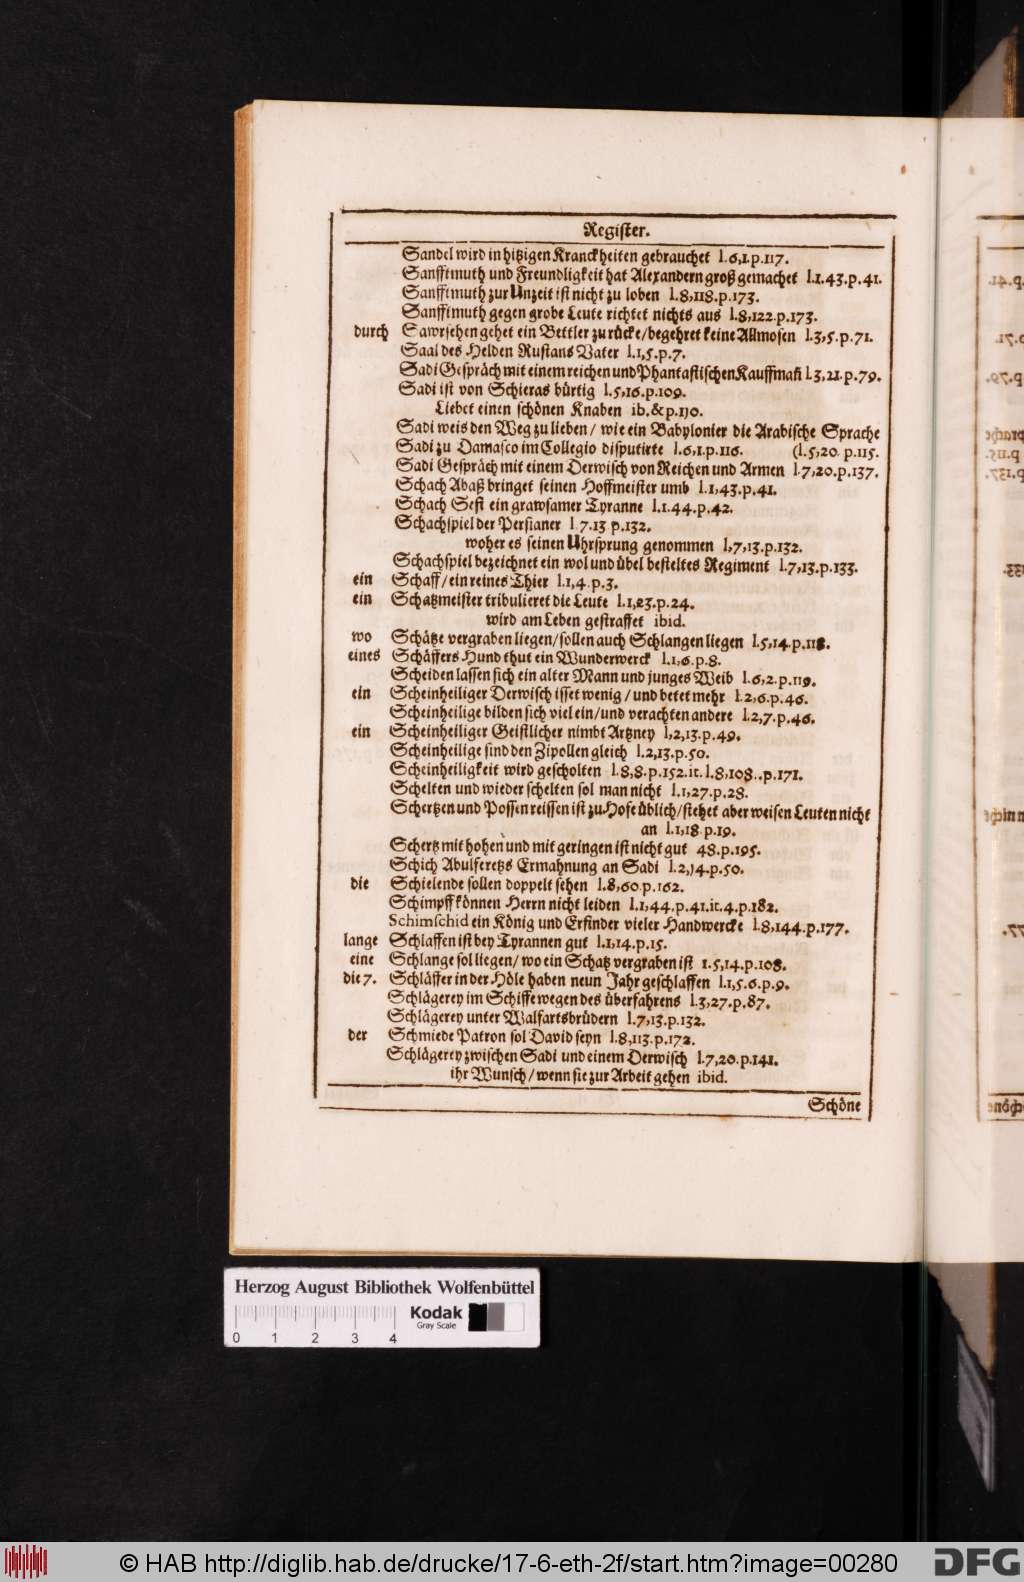 Register.
Sandel wird in hitzigen Kranckheiten gebrauchet l.6,1.p.117.
Sanfftmuth und Freundligkeit hat Alexandern groß gemachet l.1.43.p.41.
Sanfftmuth zur Unzeit ist nicht zu loben l.8,118.p.173.
Sanfftmuth gegen grobe Leute richtet nichts aus l.8,122.p.173.
durch Sawrsehen gehet ein Bettler zu rücke/begehret keine Allmosen l.3,5.p.71.
Saal des Helden Rustans Vater l.1,5.p.7.
Sadi Gespräch mit einem reichen und Phantastischen Kauffmañ l.3,21.p.79.
Sadi ist von Schieras bürtig l.5,16.p.109.
Liebet einen schönen Knaben ib.&p.110.
Sadi weis den Weg zu lieben/ wie ein Babylonier die Arabische Sprache
Sadi zu Damasco im Collegio disputirte l.6,1.p.116. (l.5,20.p.115.
Sadi Gespräch mit einem Derwisch von Reichen und Armen l.7,20.p.137.
Schach Abaß bringet seinen Hoffmeister umb l.1,43.p.41.
Schach Sefi ein grawsamer Tyranne l.1.44.p.42.
Schachspiel der Persianer l.7.13 p.132.
woher es seinen Uhrsprung genommen l,7,13.p.132.
Schachspiel bezeichnet ein wol und übel besteltes Regiment l.7,13.p.133.
ein Schaff/ein reines Thier l.1,4.p.3.
ein Schatzmeister tribulieret die Leute l.1,23.p.24.
wird am Leben gestraffet ibid.
wo Schätze vergraben liegen/sollen auch Schlangen liegen l.5,14.p.118.
eines Schäffers Hund thut ein Wunderwerck l.1,6.p.8.
Scheiden lassen sich ein alter Mann und junges Weib l.6,2.p.119.
ein Scheinheiliger Derwisch isset wenig/und betet mehr l.2,6.p.46.
Scheinheilige bilden sich viel ein/und verachten andere l.2,7.p.46.
ein Scheinheiliger Geistlicher nimbt Artzney l,2,13.p.49.
Scheinheilige sind den Zipollen gleich l.2,13.p.50.
Scheinheiligkeit wird gescholten l.8,8.p.152.it.l.8,108..p.171.
Schelten und wieder schelten sol man nicht l.1,27.p.28.
Schertzen und Possen reissen ist zu Hofe üblich/stehet aber weisen Leuten nicht
an l.1,18.p.19.
Schertz mit hohen und mit geringen ist nicht gut 48.p.195.
Schich Abulferetzs Ermahnung an Sadi l.2,14.p.50.
die Schielende sollen doppelt sehen l.8,60.p.162.
Schimpff können Herrn nicht leiden l.1,44.p.41.it.4.p.182.
Schimschid ein König und Erfinder vieler Handwercke l.8,144.p.177.
lange Schlaffen ist bey Tyrannen gut l.1,14.p.15.
eine Schlange sol liegen/wo ein Schatz vergraben ist 1.5,14.p.108.
die 7. Schläffer in der Höle haben neun Jahr geschlaffen l.1,5.6.p.9.
Schlägerey im Schiffe wegen des überfahrens l.3,27.p.87.
Schlägerey unter Walfartsbrüdern l.7,13.p.132.
der Schmiede Patron sol David seyn l.8,113.p.172.
Schlägerey zwischen Sadi und einem Derwisch l.7,20.p.141.
ihr Wunsch/wenn sie zur Arbeit gehen ibid.
Schöne
Herzog August Bibliothek Wolfenbüttel
Kodak
Gray Scale
0 1 2 3 4
© HAB http://diglib.hab.de/drucke/17-6-eth-2f/start.htm?image=00280
DFG